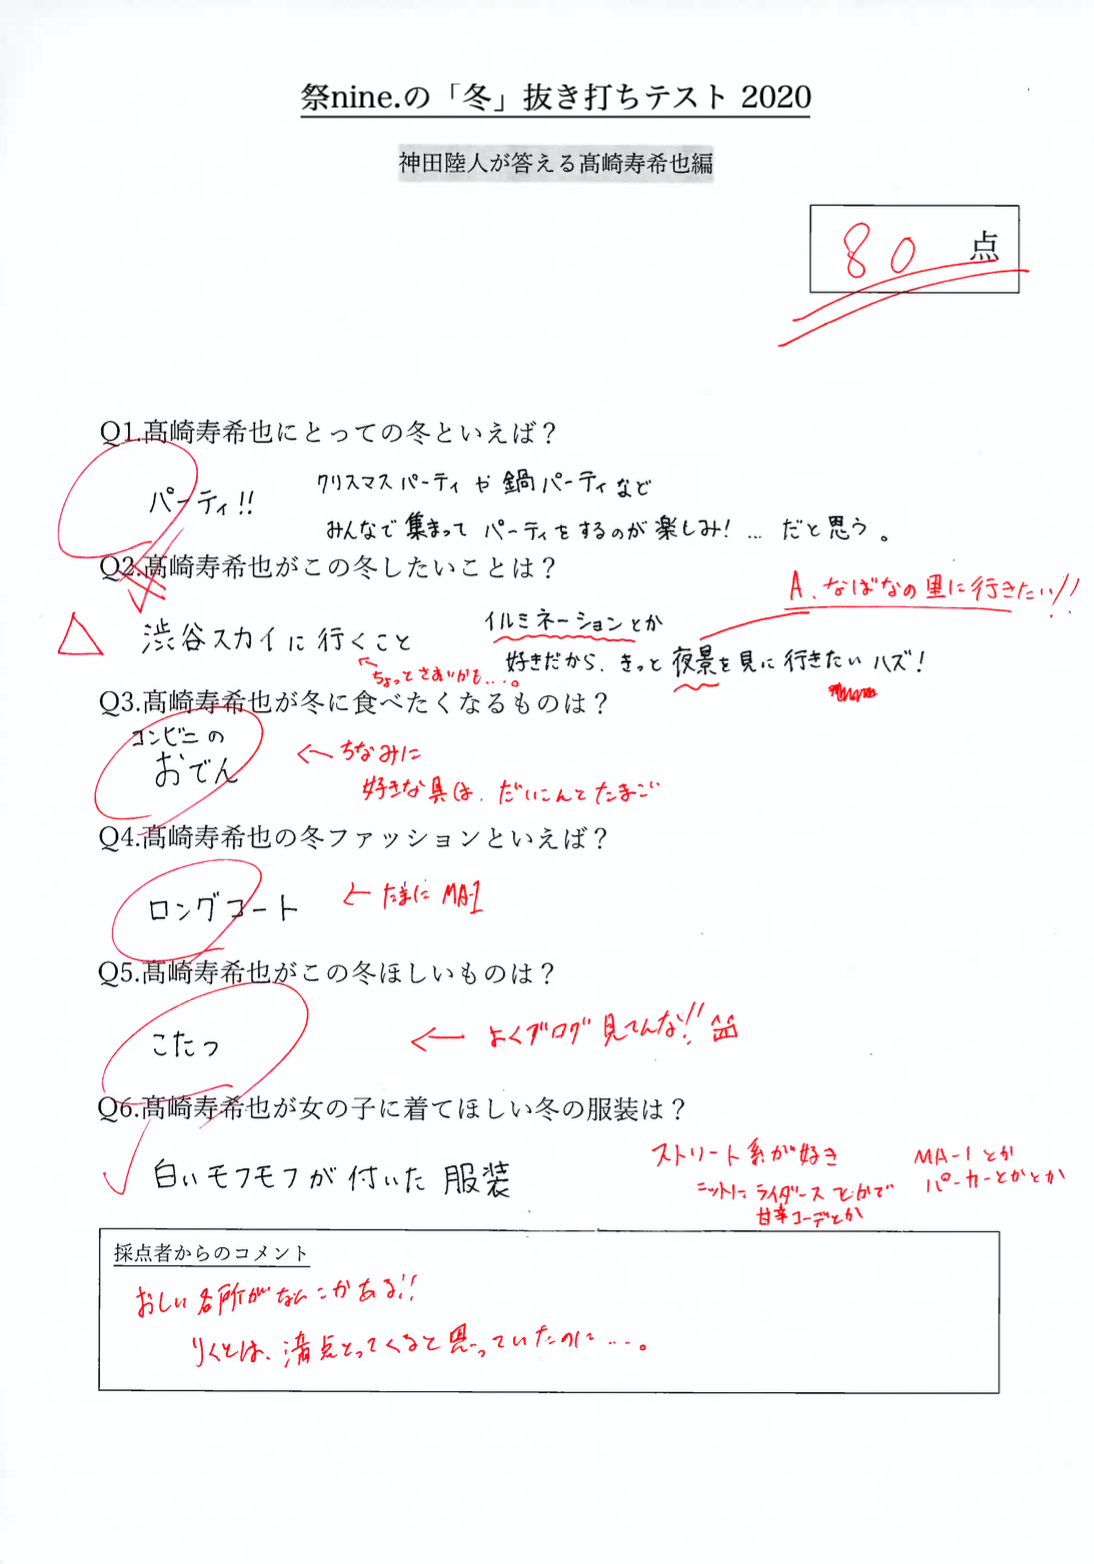 祭nine.の「冬」抜き打ちテスト 2020
神田陸人が答える髙崎寿希也編
80 点
Q1.髙崎寿希也にとっての冬といえば？
パーティ!!
クリスマスパーティや鍋パーティなど
みんなで集まってパーティをするのが楽しみ!…だと思う。
Q2.髙崎寿希也がこの冬したいことは？
A.なばなの里に行きたい!!
渋谷スカイに行くこと
イルミネーションとか
好きだから、きっと夜景を見に行きたいハズ!
←ちょっとさむいかも…。
Q3.髙崎寿希也が冬に食べたくなるものは？
コンビニの
おでん
←ちなみに
好きな具は、だいこんとたまご
Q4.髙崎寿希也の冬ファッションといえば？
ロングコート
←たまにMA-1
Q5.髙崎寿希也がこの冬ほしいものは？
こたつ
←よくブログ見てんな!!
Q6.髙崎寿希也が女の子に着てほしい冬の服装は？
白いモフモフが付いた服装
ストリート系が好き
ニットにライダースとかで
甘辛コーデとか
MA-1とか
パーカーとかとか
採点者からのコメント
おしい各所がなんこかある!!
りくとは、満点とってくると思っていたのに…。